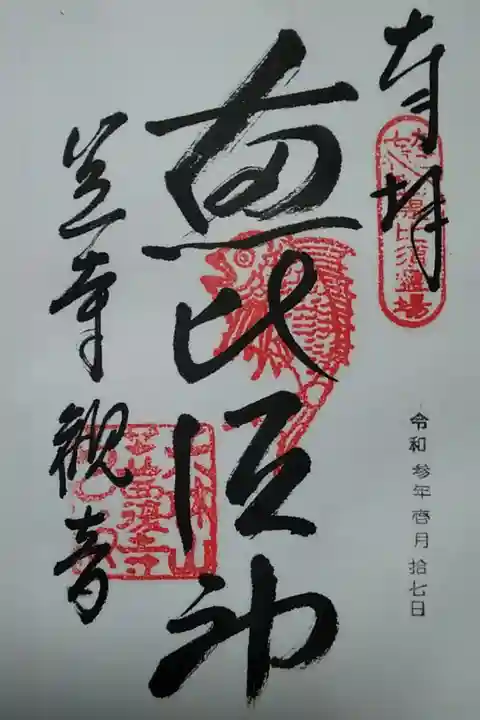 奉拝
恵比須靈場
令和参年壱月拾七日
恵比須神
笠寺観音